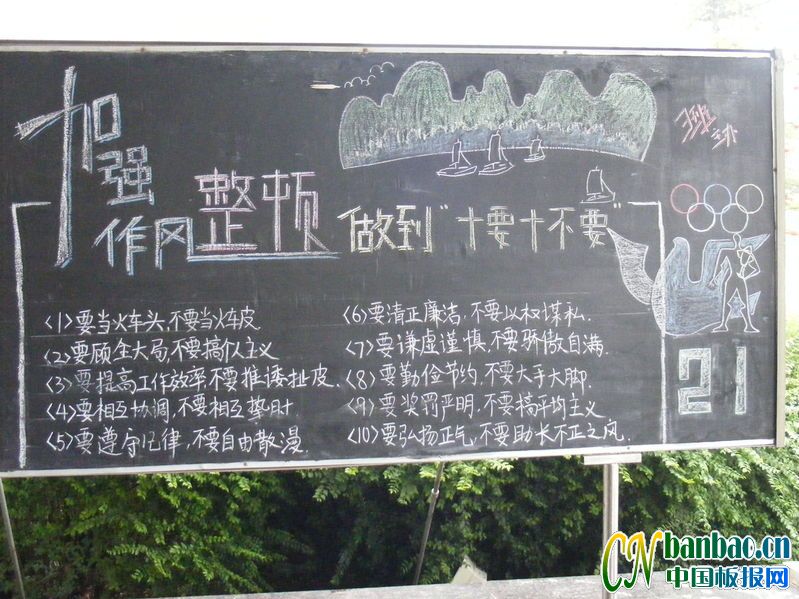 加强
作风整顿 做到"十要十不要"
3班办
<1>要当火车头,不要当火车皮
<2>要顾全大局,不要搞个人主义
<3>要提高工作效率,不要推诿扯皮
<4>要相互协调,不要相互
<5>要遵守纪律,不要自由散漫
<6>要清正廉洁,不要以权谋私
<7>要谦虚谨慎,不要骄傲自满
<8>要勤俭节约,不要大手大脚
<9>要奖罚严明,不要搞平均主义
<10>要弘扬正气,不要助长不正之风
21
CN banbao.cn
中国板报网